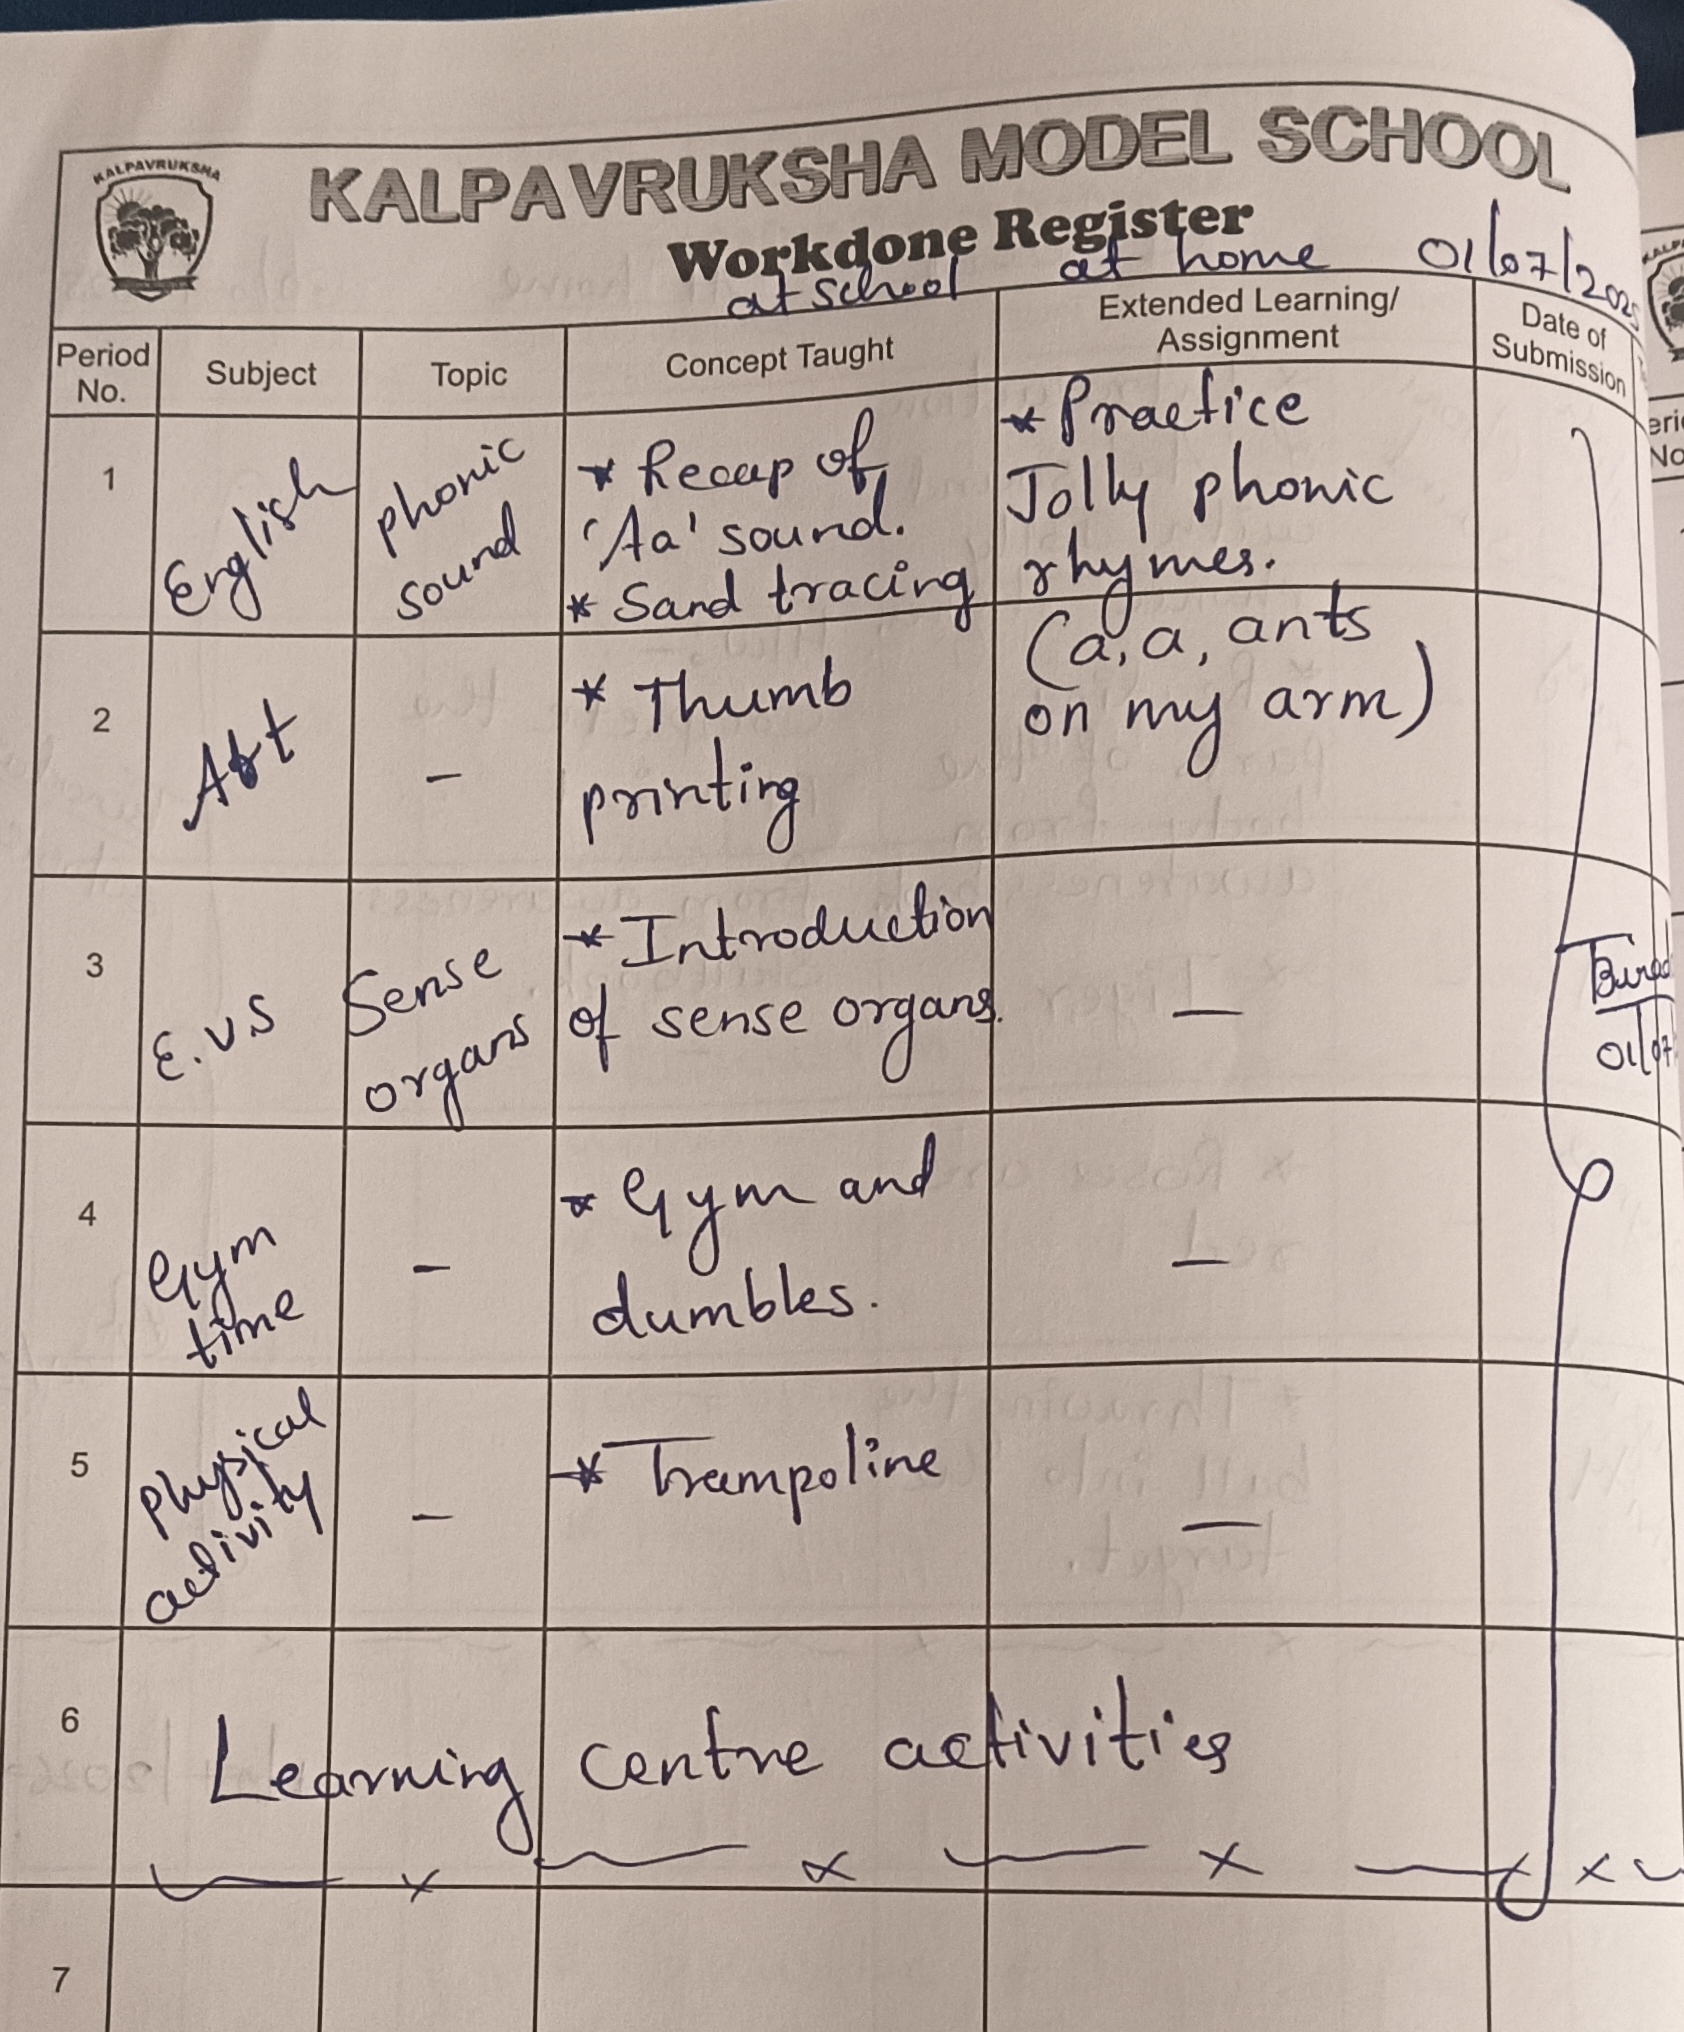 KALPAVRUKSHA
KALPAVRUKSHA MODEL SCHOOL
Workdone Register
at school at home 01/07/2025
Period No.
Subject
Topic
Concept Taught
Extended Learning/
Assignment
Date of
Submission
1
English
phonic
sound
* Recap of
'Aa' sound.
* Sand tracing
* Practice
Jolly phonic
rhymes.
(a, a, ants
on my arm)
2
Art
-
* Thumb
printing
3
E.V.S
Sense
organs
* Introduction
of sense organs.
-
01/07
4
Gym
time
-
* Gym and
dumbles.
-
5
Physical
activity
-
* Trampoline
-
6
Learning centre activities
7